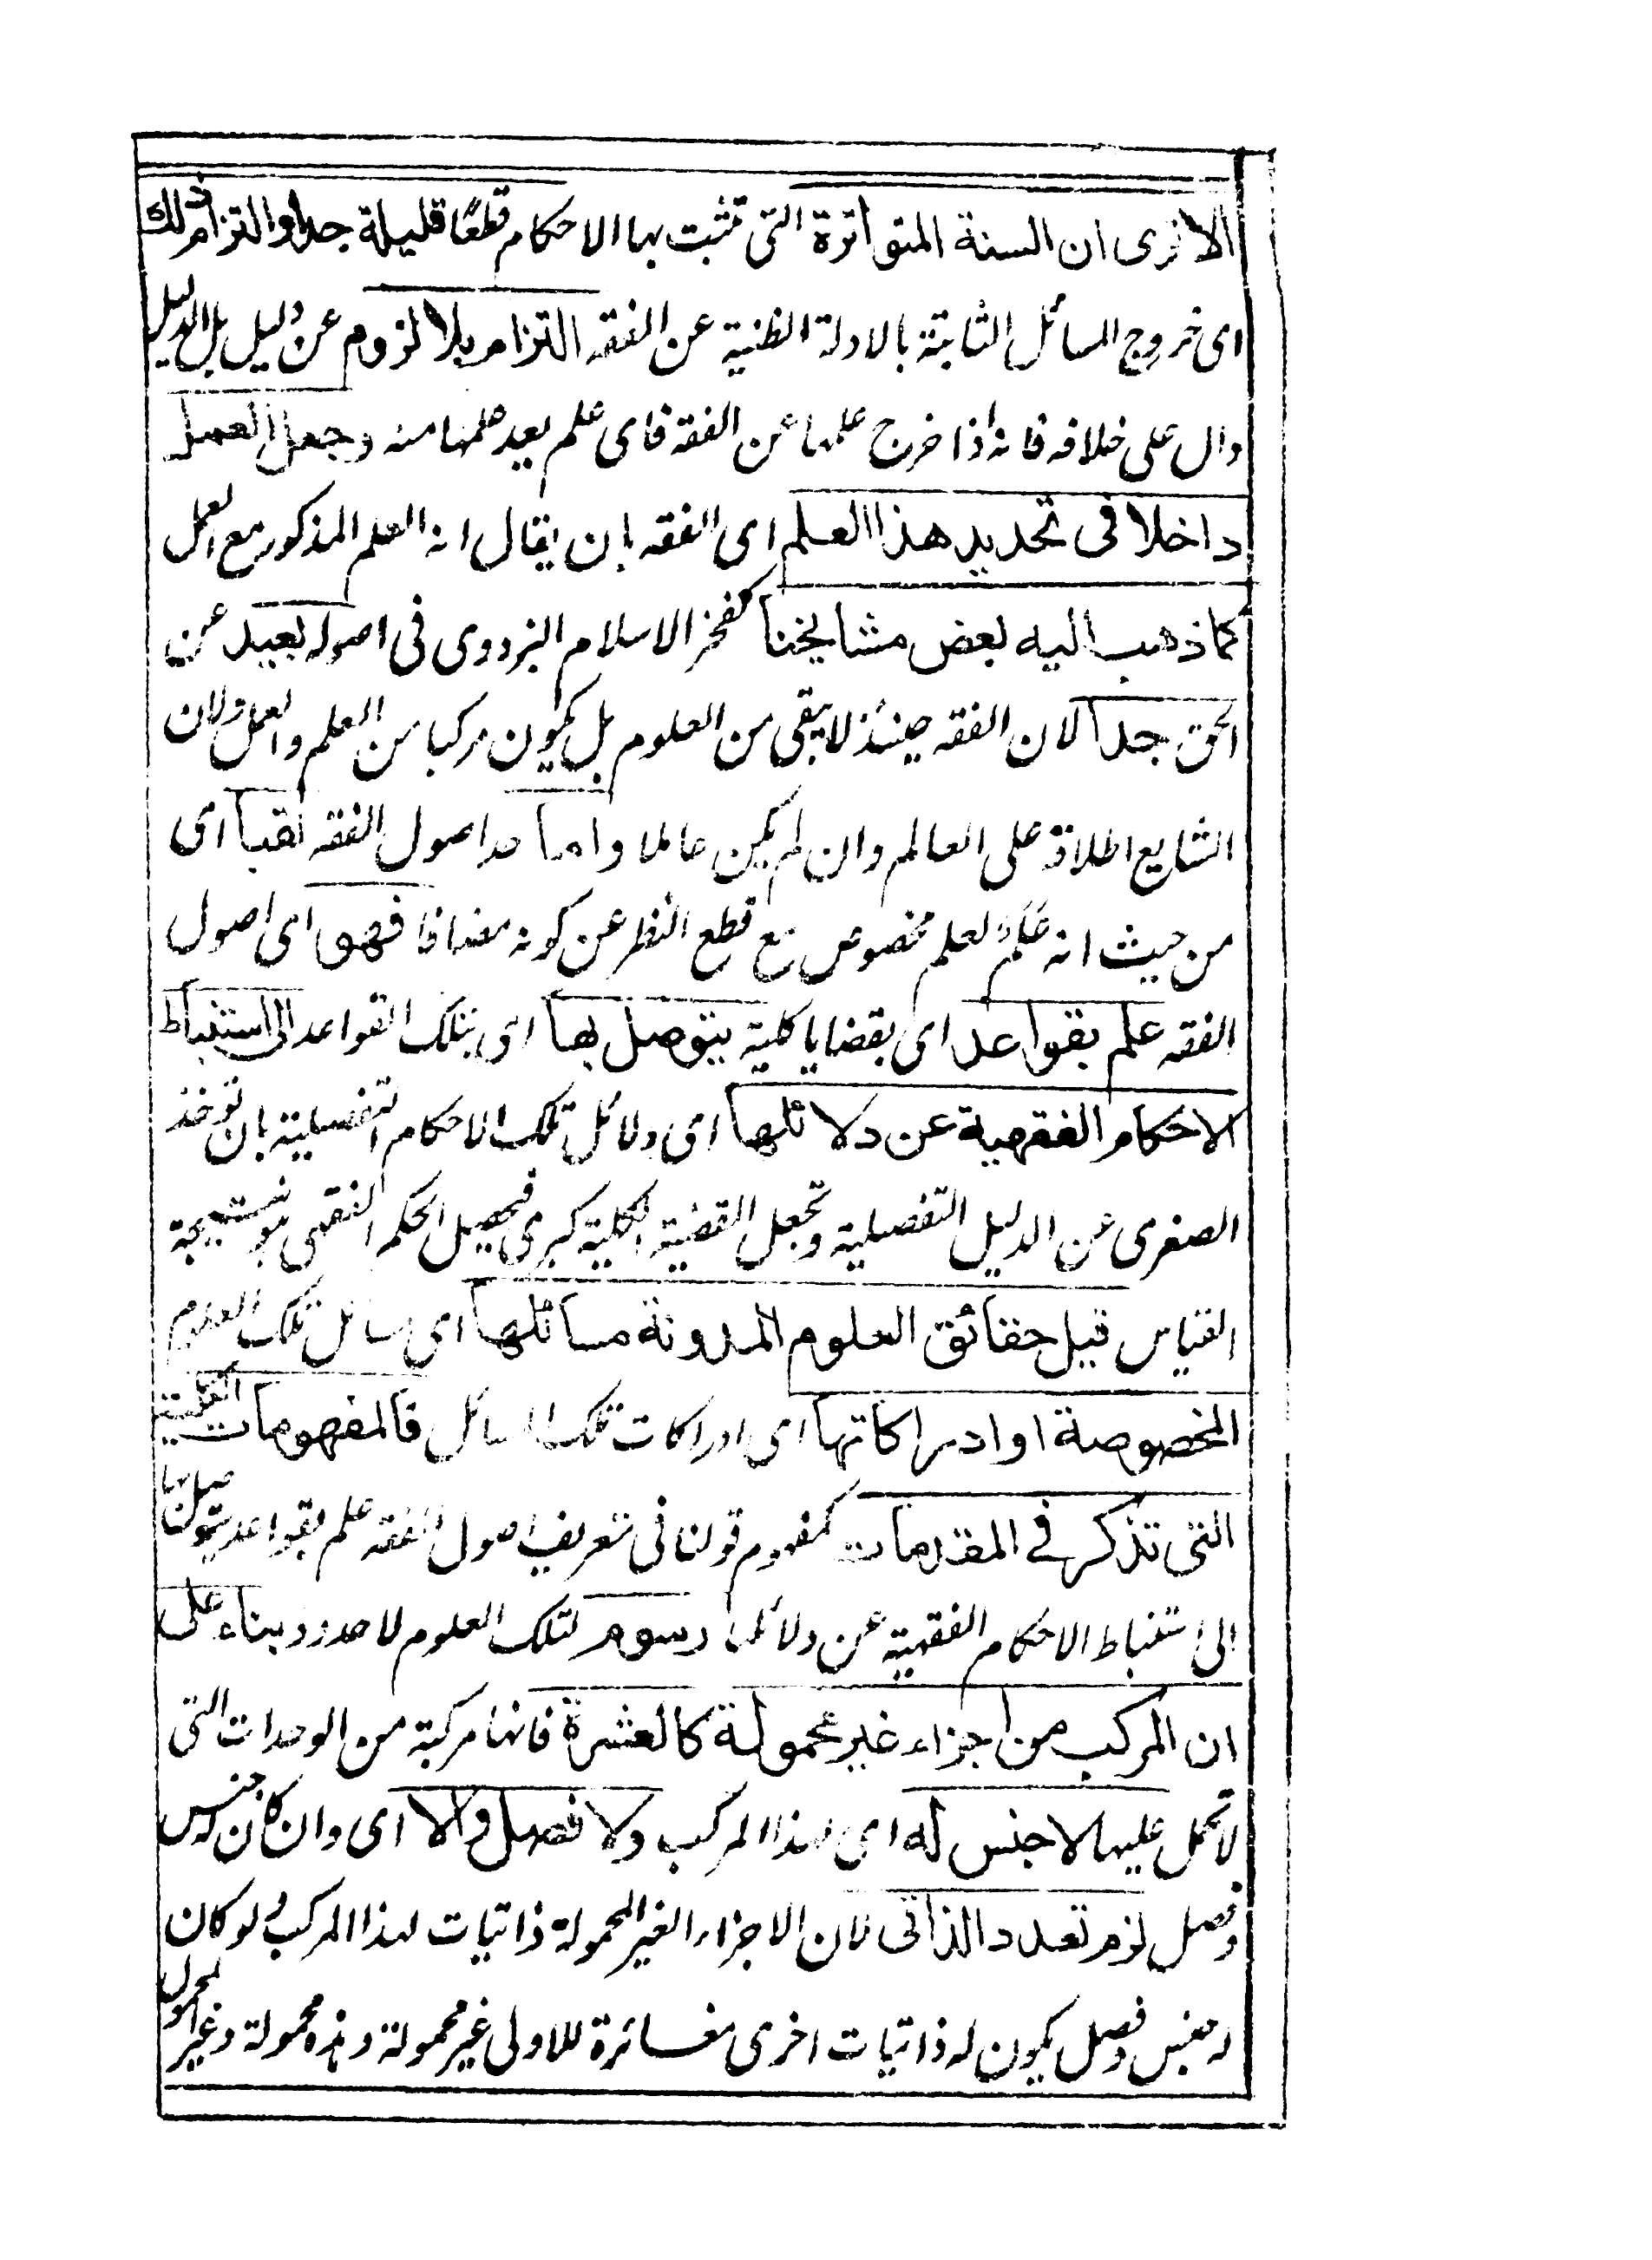 الا ترى ان السنة المتواترة التي تثبت بها الاحكام قطعًا قليلة جدا والتزام ذلك
اى خروج المسائل الثابتة بالادلة الظنية عن الفقه التزام بلا لزوم عن دليل بل الدليل
دال على خلافه فانه اذا خرج علمها عن الفقه فاى علم يعد علمها منه وجعل العمل
داخلا فى تحديد هذا العلم اى الفقه بان يقال انه العلم المذكور مع العمل
كما ذهب اليه بعض مشايخنا كفخر الاسلام البزدوى فى اصوله بعيد عن
الحق جدا لان الفقه حينئذ لا يبقى من العلوم بل يكون مركبا من العلم والعمل ولان
الشايع اطلاقه على العالم وان لم يكن عاملا واما حد اصول الفقه لقبا اى
من حيث انه عَلَمٌ لعلم مخصوص مع قطع النظر عن كونه مضافا فهو اى اصول
الفقه علم بقواعد اى بقضايا كلية يتوصل بها اى بتلك القواعد الى استنباط
الاحكام الفقهية عن دلائلها اى دلائل تلك الاحكام التفصيلية بان توخذ
الصغرى عن الدليل التفصيلية وتجعل القضية الكلية كبرى فيحصل الحكم الفقهى هو نتيجة
القياس قيل حقائق العلوم المدونة مسائلها اى مسائل تلك العلوم
المخصوصة او ادراكاتها اى ادراكات تلك المسائل فالمفهومات الكلية
التى تذكر فى المقدمات كمفهوم قولنا فى تعريف اصول الفقه علم بقواعد يتوصل بها
الى استنباط الاحكام الفقهية عن دلائلها رسوم لتلك العلوم لا حدود بناء على
ان المركب من اجزاء غير محمولة كالعشرة فانها مركبة من الوحدات التى
لا تحمل عليها لا جنس له اى لهذا المركب ولا فصل والا اى وان كان له جنس
وفصل لزم تعدد الذاتى لان الاجزاء الغير المحمولة ذاتيات لهذا المركب ولو كان
له جنس وفصل يكون له ذاتيات اخرى مغائرة للاولى غير محمولة وهذه محمولة وغير المحمول